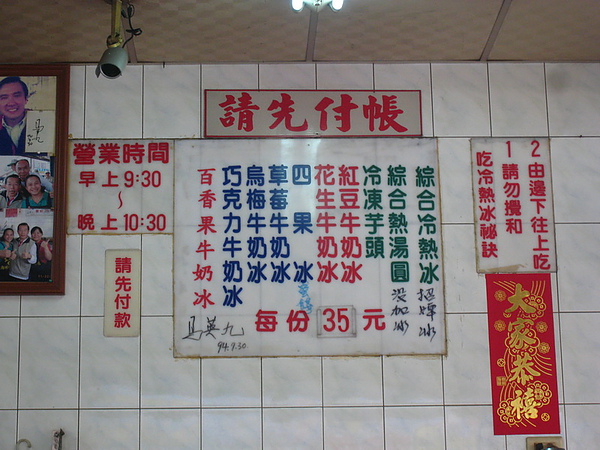 請先付帳
營業時間
早上9:30
~
晚上10:30
請先付款
綜合冷熱冰
綜合熱湯圓
冷凍芋頭
紅豆牛奶冰
花生牛奶冰
四果冰
草莓牛奶冰
烏梅牛奶冰
巧克力牛奶冰
百香果牛奶冰
沒加冰
每份35元
馬英九
94.7.30.
吃冷熱冰秘訣
1請勿攪和
2由邊下往上吃
大家恭禧